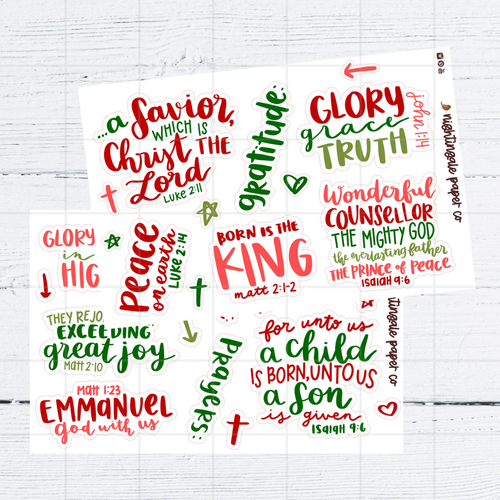 ...a Savior,
WHICH IS
Christ THE
Lord
Luke 2:11
gratitude:
GLORY
grace
TRUTH
John 1:14
nightingale paper co
Wonderful
COUNSELLOR
THE MIGHTY GOD
the everlasting father
THE PRINCE of PEACE
ISAIAH 9:6
GLORY
in
HIG
Peace
on earth
LUKE 2:14
BORN IS THE
KING
matt 2:1-2
THEY REJO
EXCEEDING
great joy
MATT 2:10
Prayers:
for unto us
a child
IS BORN, UNTO US
a Son
is given
ISAIAH 9:6
tingale paper co
Matt 1:23
EMMANUEL
God with us